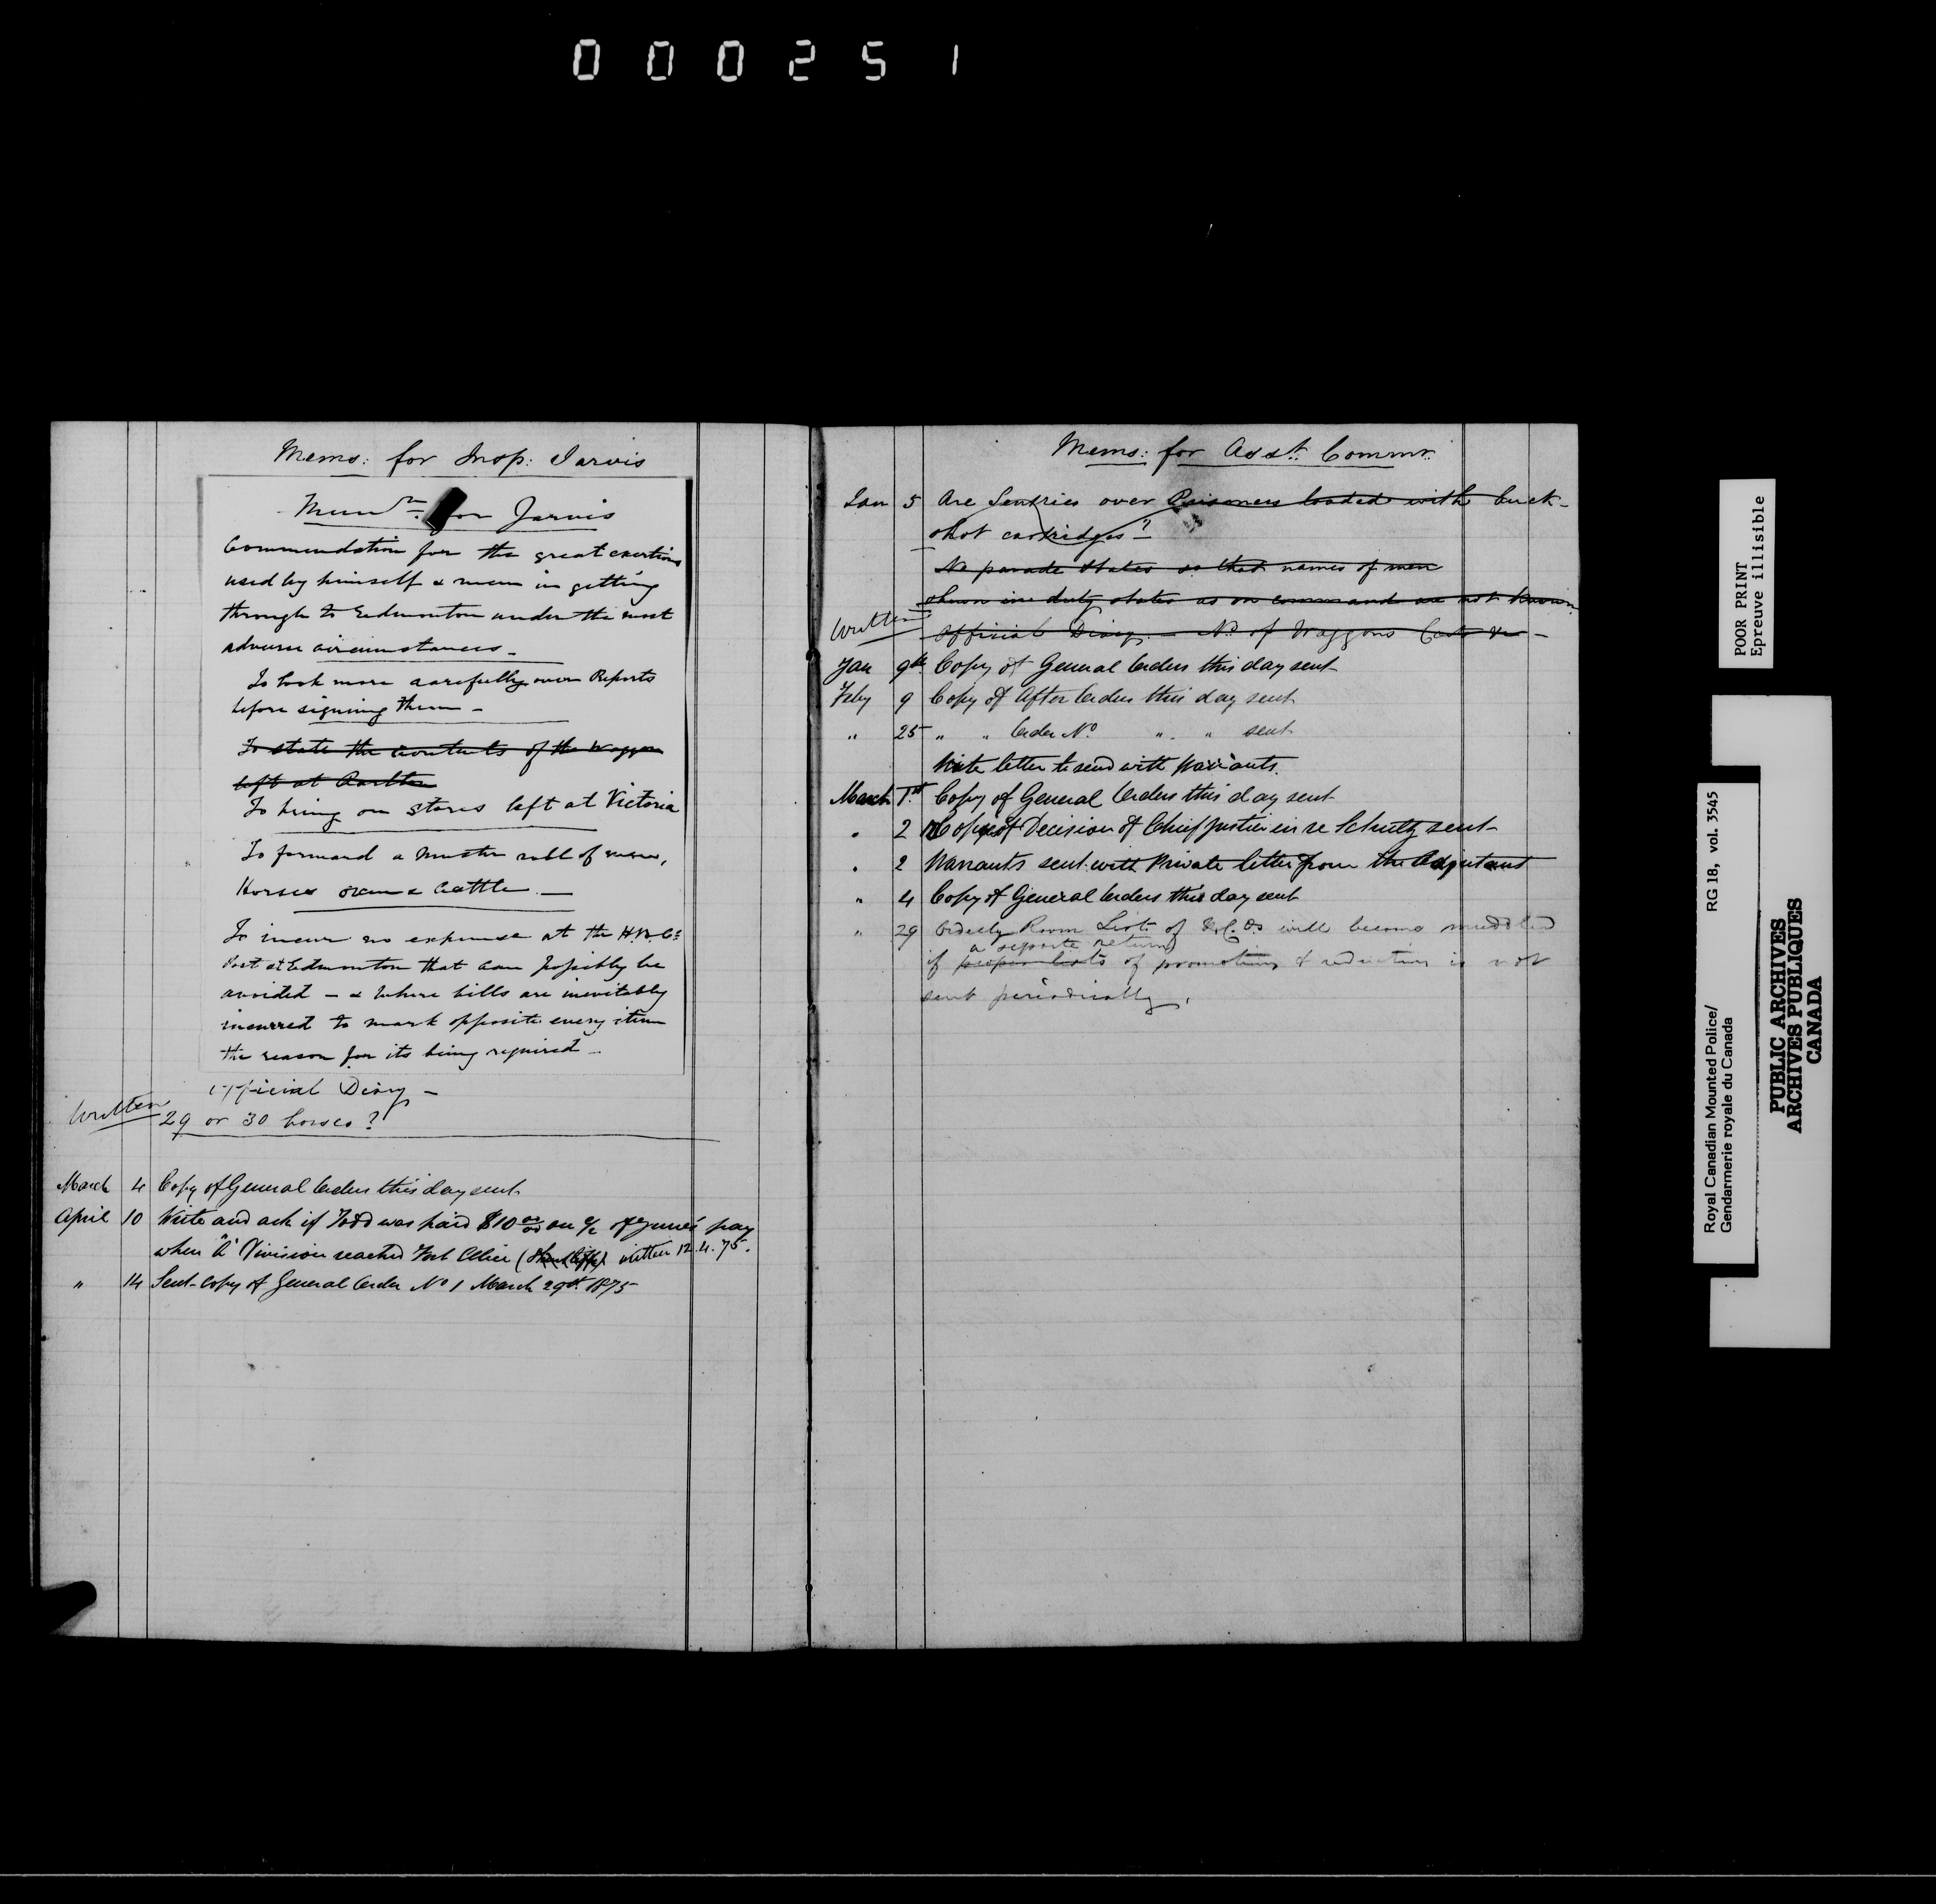 000251
Mems: for Insp: Jarvis
Memdm: for Jarvis
Commendation for the great exertions
used by himself & men in getting
through to Edmonton under the most
adverse circumstances -
To look more carefully over Reports
before signing them -
To state the contents of the Waggon
left at
To bring on stores left at Victoria
To forward a Muster roll of men,
Horses oxen & Cattle. -
To incur no expense at the H.B.Co
Post at Edmonton that can possibly be
avoided - & where bills are inevitably
incurred to mark opposite every item
the reason for its being required -
Official Diary -
Written
29 or 30 horses?
March 4 Copy of General Orders this day sent
April 10 Write and ask if Todd was paid $10 00/00 on a/c of June's pay
when "A" Division reached Fort Ellice written 12.4.75.
" 14 Sent Copy of General Order No 1 March 29th 1875
Mems: for Asst. Commr.
Jan 5 Are Sentries over Prisoners loaded with buck-
shot cartridges?
No parade states so that names of men
shown in duty states as on command are not known
Written
Official Diary - No. of Waggons Carts &c -
Jan 9th Copy of General Orders this day sent
Feby 9 Copy of After Orders this day sent
" 25 " " Order No " " sent
Write letter to send with Warrants.
March 1st Copy of General Orders this day sent
" 2 Copy of Decision of Chief Justice in re Schultz sent
" 2 Warrants sent with Private letter from the Adjutant
" 4 Copy of General Orders this day sent
" 29 Orderly Room List of N.C.Os will become muddled
a separate return
if proper lists of promotions & reduction is not
sent periodically.
POOR PRINT
Epreuve illisible
Royal Canadian Mounted Police/ RG 18, vol. 3545
Gendarmerie royale du Canada
PUBLIC ARCHIVES
ARCHIVES PUBLIQUES
CANADA